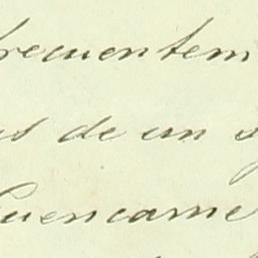 frecuentem
us de un s
Cuencame